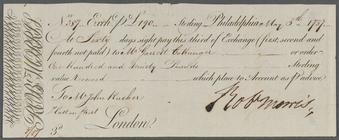 No. 287. Exch. for £190 — Sterling — Philadelphia May 5th 1779.
At Sixty days sight pay this third of Exchange (first, second and
fourth not paid) to Mr Garrett Cottringer or order
One Hundred and Ninety Pounds Sterling
value received which place to Account as p advice
To Mr John
London.
Robt Morris
3d